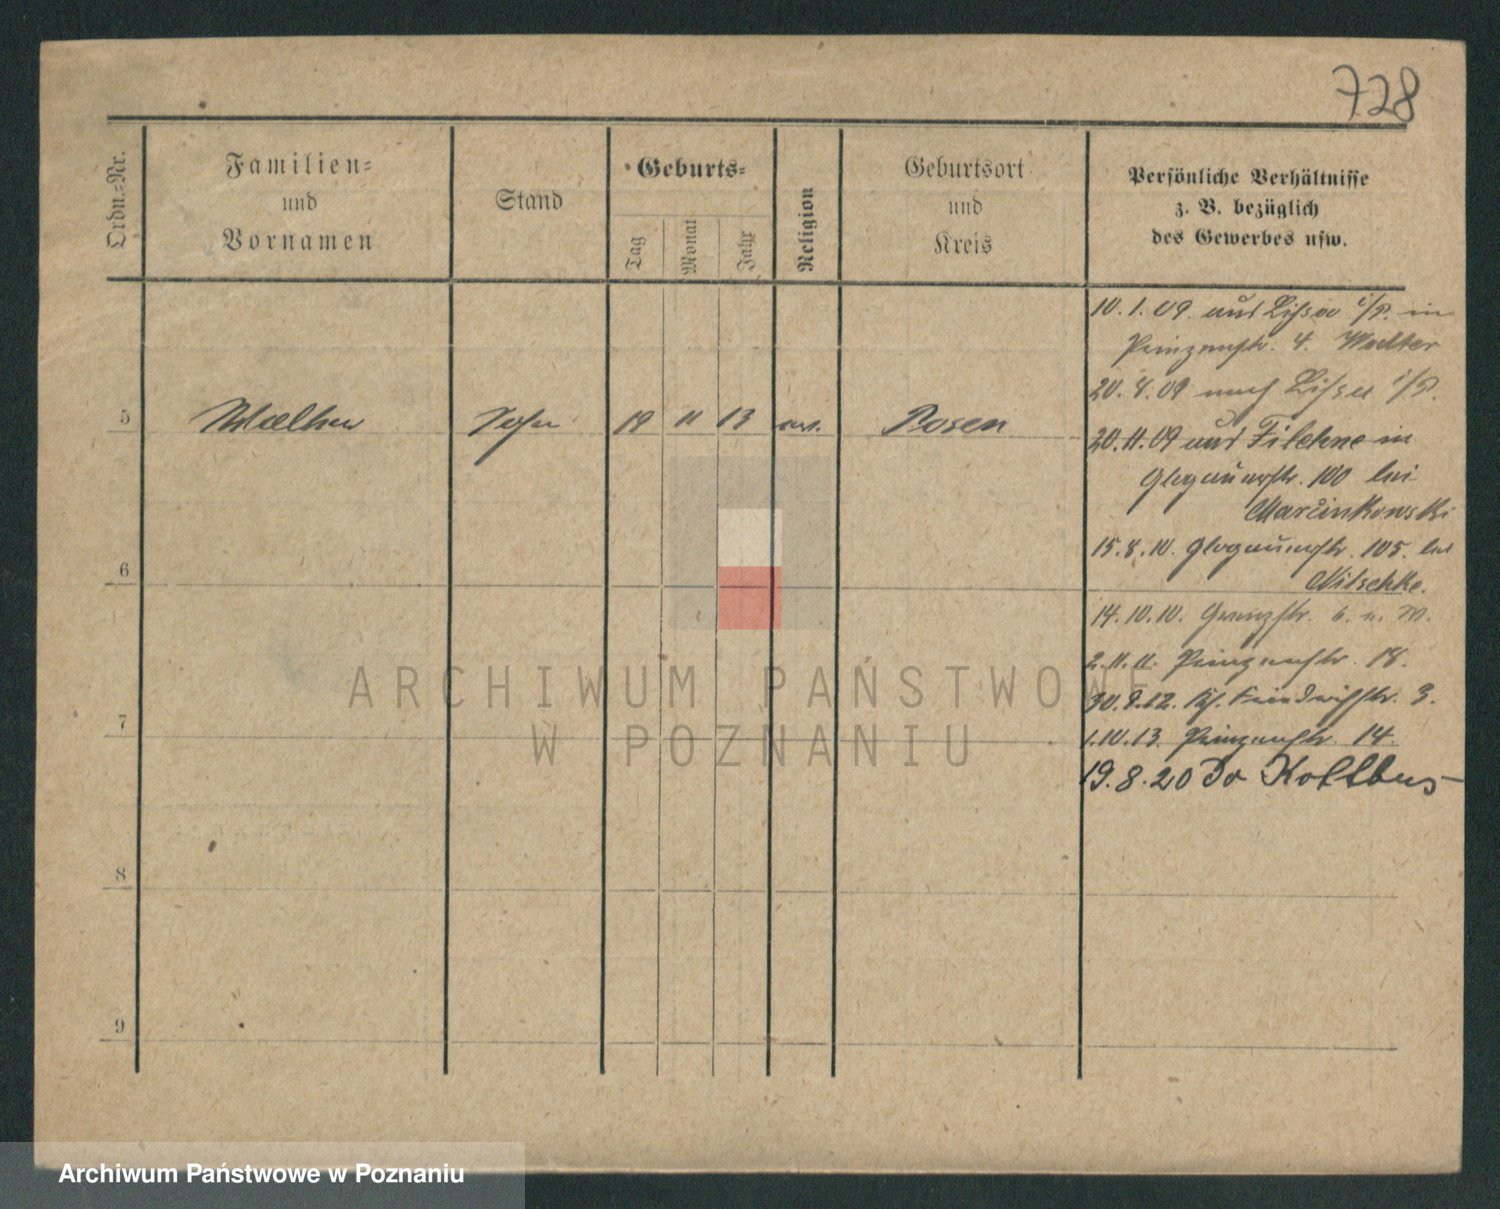 728
Ordn.=Nr.
Familien=
und
Vornamen
Stand
Geburts=
Tag
Monat
Jahr
Religion
Geburtsort
und
Kreis
Persönliche Verhältnisse
z. B. bezüglich
des Gewerbes usw.
10. 1. 09. aus Lissa i/P. in
Prinzenstr. 4. Walter
20. 4. 09 nach Lissa i/P.
5 Walther Sohn 19 11 13 ev. Posen
20. 11. 09 aus Filehne in
Glogauerstr. 100 bei
Marcinkowski
15. 8. 10. Glogauerstr. 105. bei
6
Nitschke.
14. 10. 10. Grenzstr. 6.
2. 11. 11. Prinzenstr. 18.
7
30. 9. 12. Friedrichstr. 3.
1. 10. 13. Prinzenstr. 14.
19. 8. 20 Kottbus
8
9
ARCHIWUM PAŃSTWOWE
W POZNANIU
Archiwum Państwowe w Poznaniu